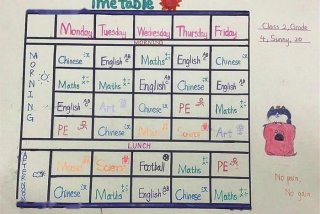 Time table
Monday Tuesday Wednesday Thursday Friday
MORNING
Chinese English Chinese Chinese English
Maths Maths English English Chinese
English Art Chinese PE Maths
PE Chinese Maths Science Art
LUNCH
Music Science Football Maths PE
Chinese Maths English Chinese Maths
Class 2, Grade
4, Sunny, 20
No pain,
No gain